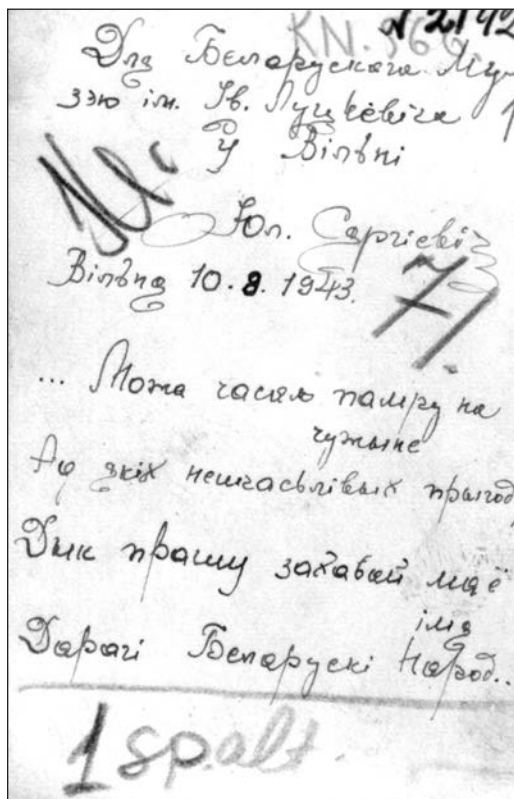 N 2192
KN. 966
Для Беларускага Му-
зэю ім. Ів. Луцкевіча
У Вільні
Юл. Саргіевіч
Вільня 10.8.1943.
71.
... Можа часам памру на
чужыне
Ад якіх нешчасьлівых прыгод,
Дык прашу захавай маё
імя
Дарагі Беларускі Народ...
1 spalt.